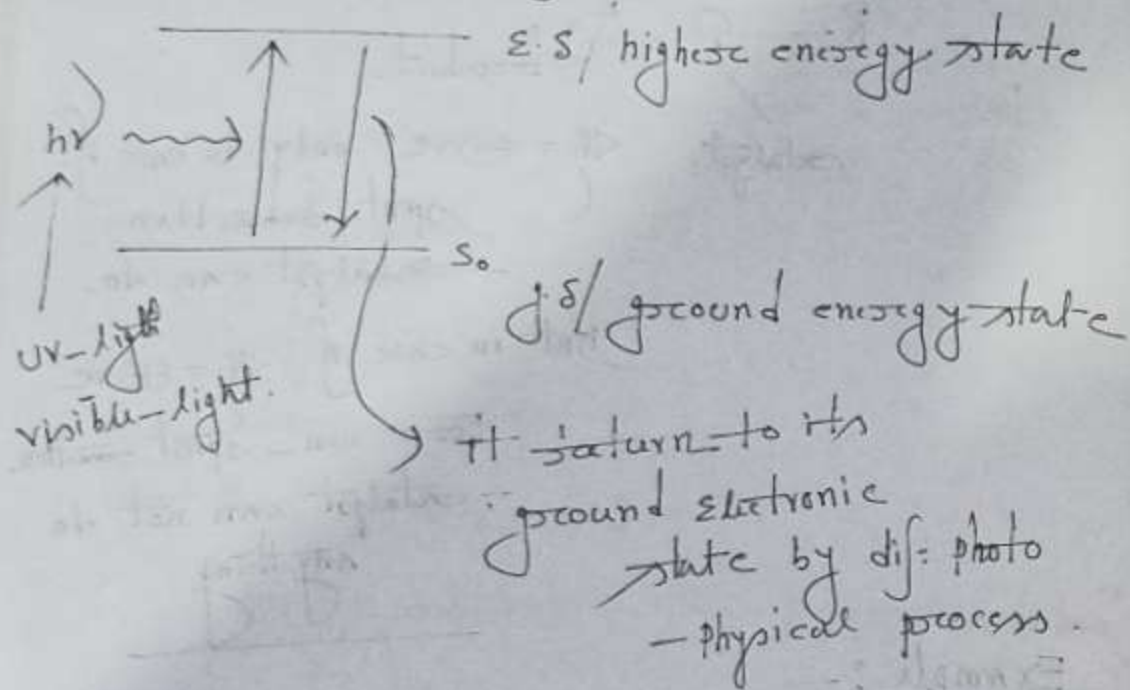 E.S/ highest energy state
hν
S₀
g.s/ ground energy state
uv-light
visible-light.
it return to its
ground Electronic
state by dif: photo
- physical process.
Example :-